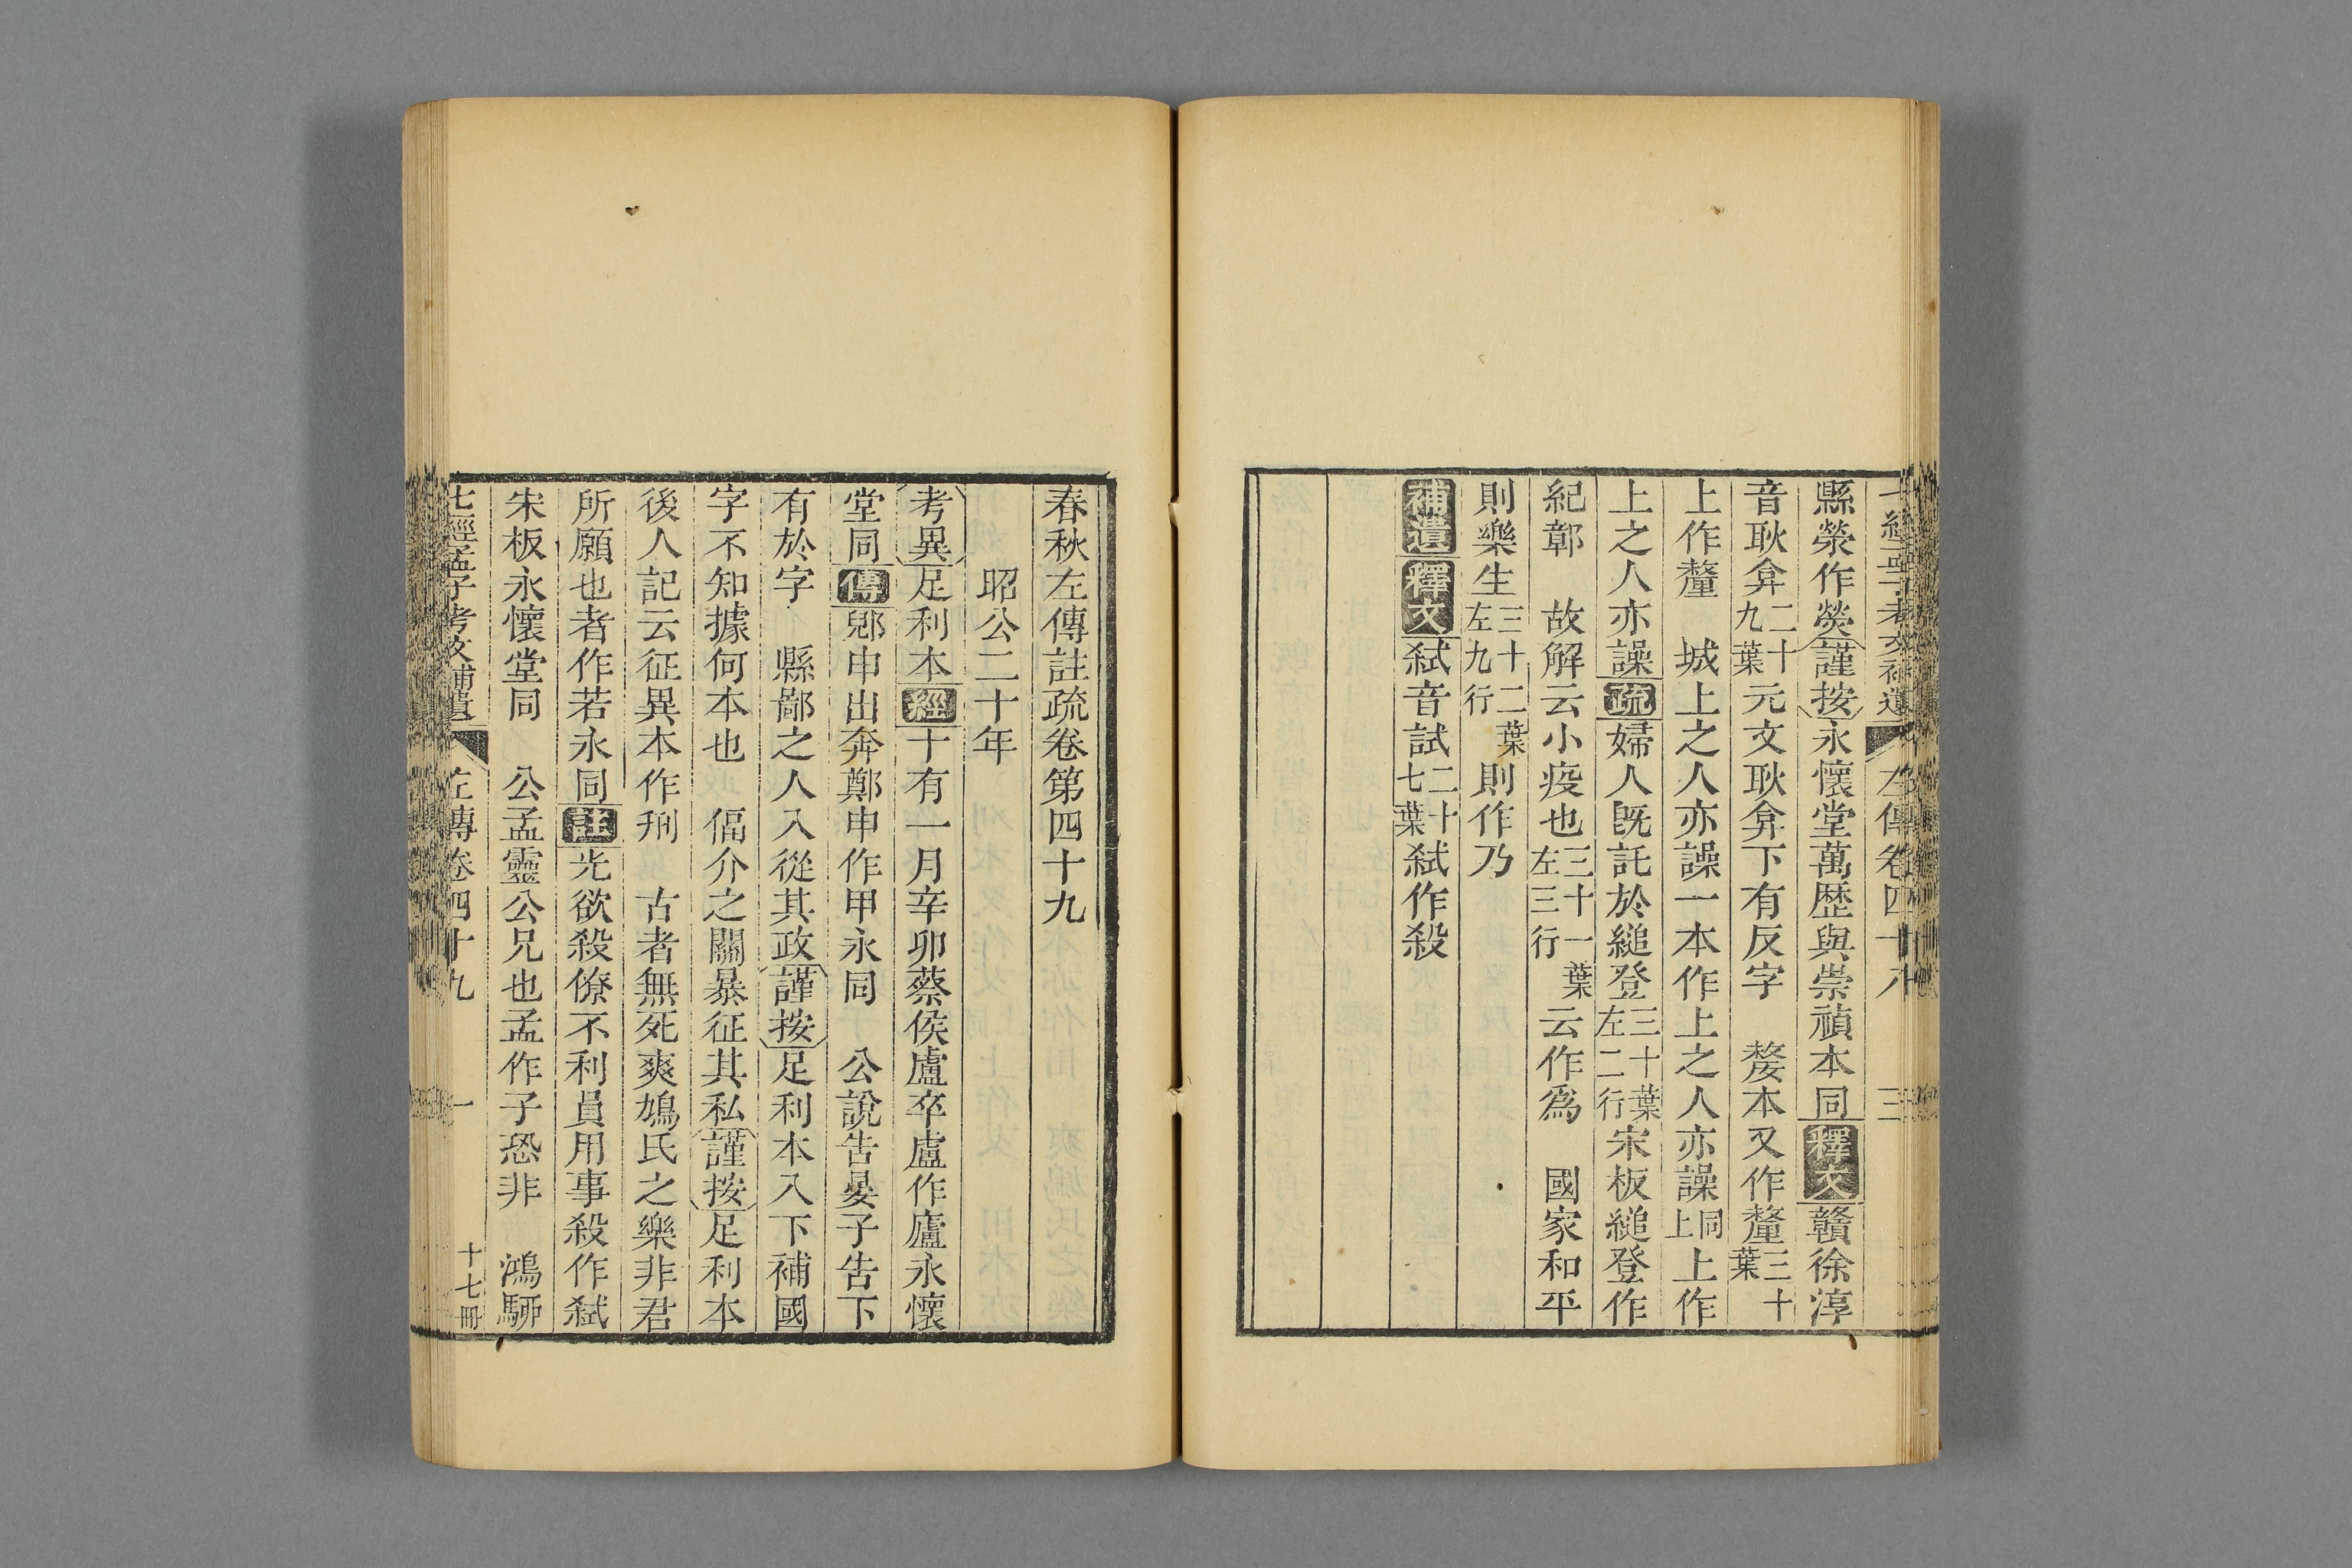 七經孟子考文補遺 左傳卷四十八 三
縣滎作熒謹按永懷堂萬歷與崇禎本同釋文贛徐淳
音耿弇二十九葉元文耿弇下有反字 嫠本又作釐三十葉
上作釐 城上之人亦譟一本作上之人亦譟同上上作
上之人亦譟疏婦人既託於縋登三十葉左二行宋板縋登作
紀鄣 故解云小疫也三十一葉左三行云作爲 國家和平
則樂生三十二葉左九行則作乃
補遺釋文弑音試二十七葉弑作殺
春秋左傳註疏卷第四十九
昭公二十年
考異足利本經十有一月辛卯蔡侯盧卒盧作廬永懷
堂同傳郳申出奔鄭申作甲永同 公說告晏子告下
有於字 縣鄙之人入從其政謹按足利本入下補國
字不知據何本也 偪介之關暴征其私謹按足利本
後人記云征異本作刑 古者無死爽鳩氏之樂非君
所願也者作若永同註光欲殺僚不利員用事殺作弑
宋板永懷堂同 公孟靈公兄也孟作子恐非 鴻駵
七經孟子考文補遺 左傳卷四十九 一 十七冊